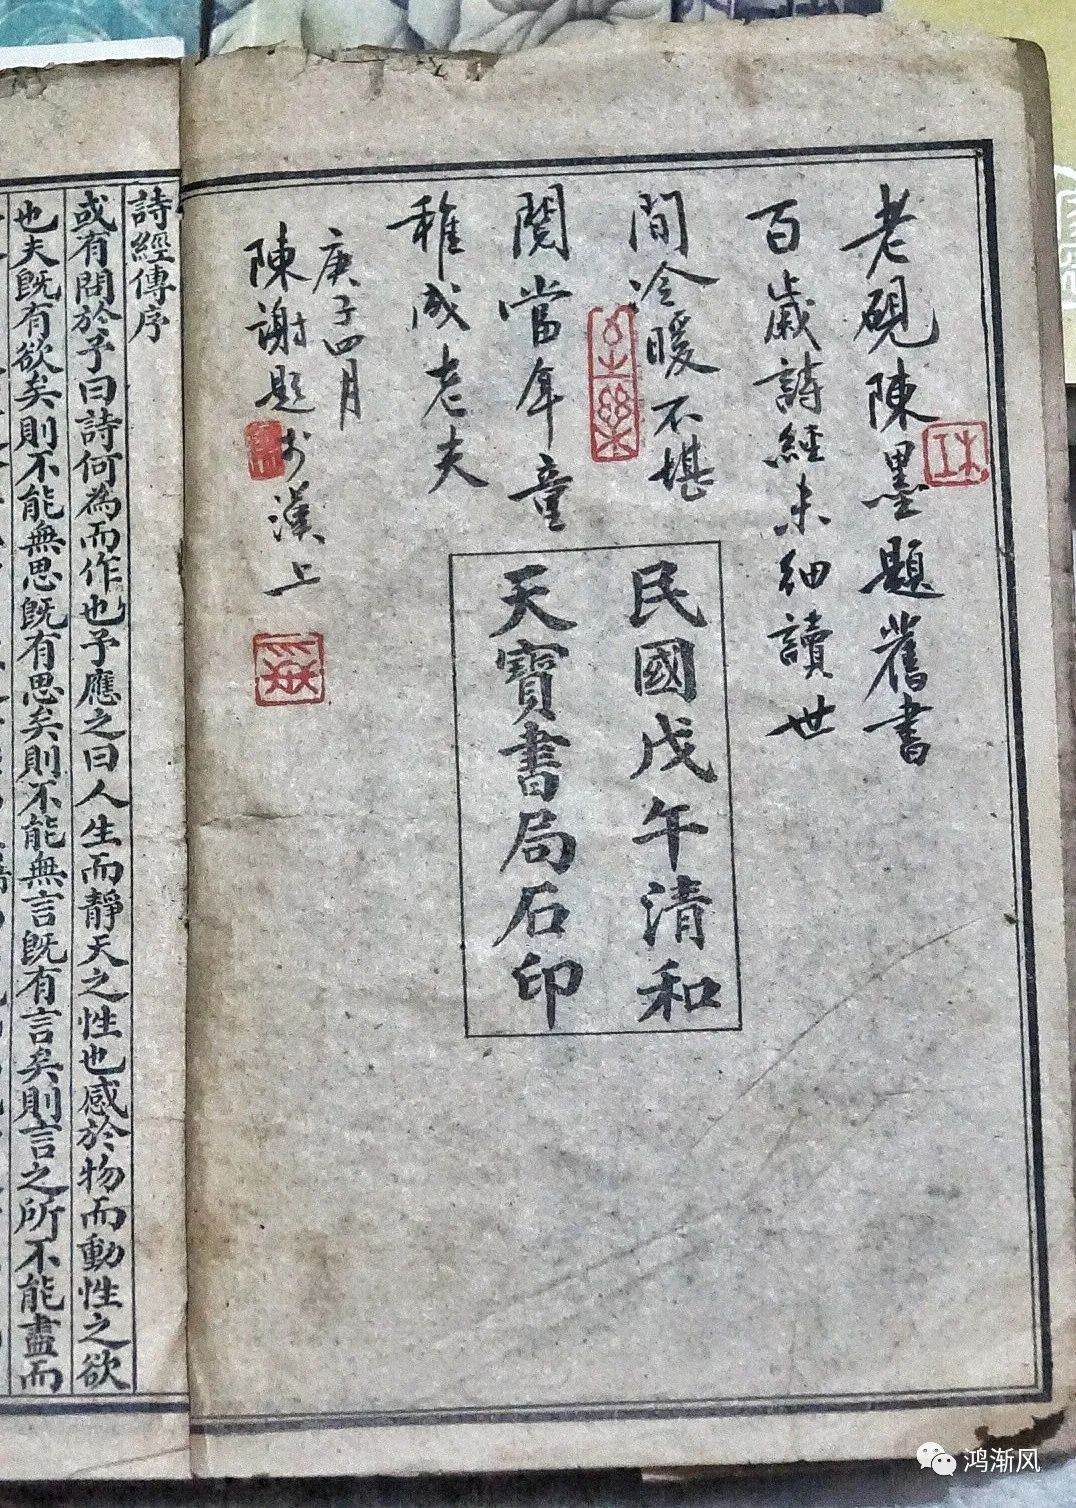 老硯陳墨題舊書
百歲詩經未細讀世
間冷暖不堪
閱當年童
稚成老夫
庚子四月
陳謝題於漢上
民國戊午清和
天寶書局石印
詩經傳序
或有問於予曰詩何為而作也予應之曰人生而靜天之性也感於物而動性之欲
也夫既有欲矣則不能無思既有思矣則不能無言既有言矣則言之所不能盡而
鸿渐风